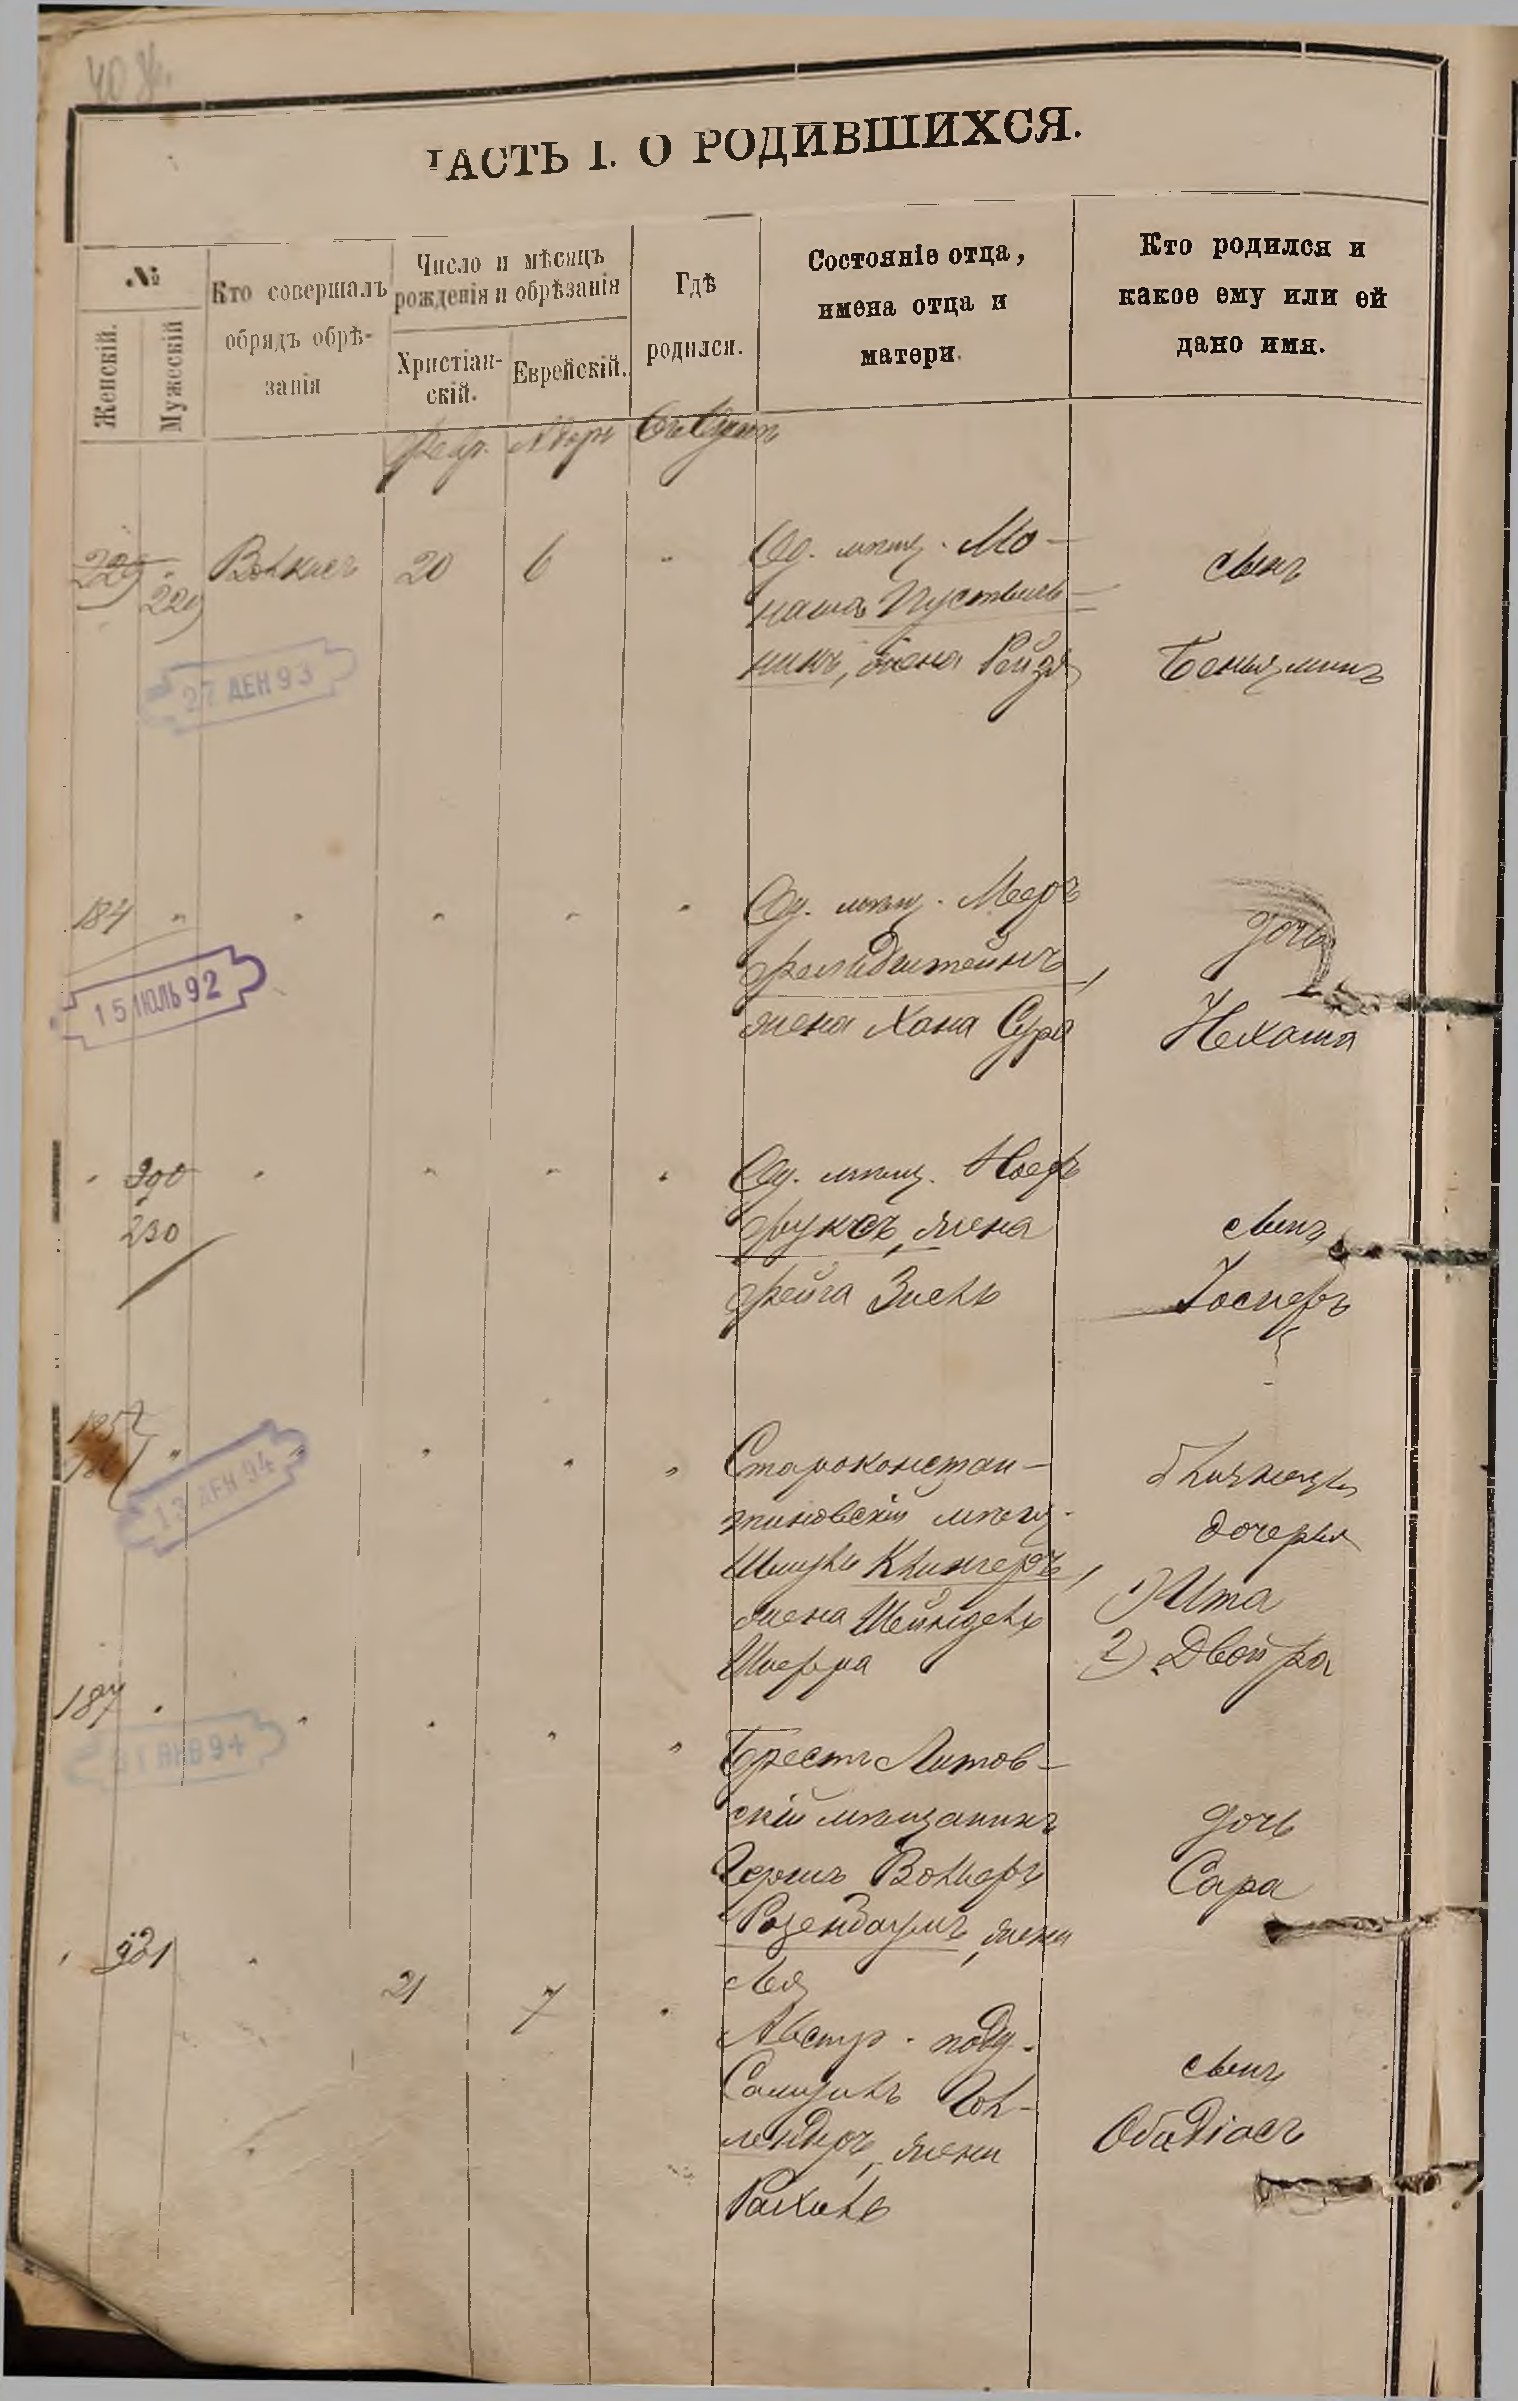 40
ЧАСТЬ I. О РОДИВШИХСЯ.
№
Женскій.
Мужескій
Кто совершалъ
обрядъ обрѣ-
занія
Число и мѣсяцъ
рожденія и обрѣзанія
Христіан-
скій.
Еврейскій.
Гдѣ
родился.
Состояніе отца,
имена отца и
матери.
Кто родился и
какое ему или ей
дано имя.
Февр. Адаръ
229 " 20 6 " Од. мѣщ. Мо-
229
наша Пустыль-
никъ, жена Рейзя
сынъ
Беньяминъ
27 ДЕК 93
184 " " " " " Од. мѣщ. Мееръ
Гольдштейнъ,
жена Хана Сура
дочь
Нехама
15 ІЮЛЬ 92
" 230 " " " " Од. мѣщ. Іосифъ
Фуксъ, жена
Фейга Зисль
сынъ
Іосифъ
" " " " " Староконстан-
тиновскій мѣщ.
Клингеръ,
жена Шейндель
Шифра
близнецы
дочери
1) Ита
2) Двойра
13 ДЕК 94
187 " " " " " Брестъ Литов-
скій мѣщанинъ
Гершъ Вольфъ
Розенбаумъ, жена
Лея
дочь
Сара
31 ЯНВ 94
" 231 " 21 7 " Австр. подд.
Самуилъ Гол-
лендеръ, жена
Рахиль
сынъ
Обадіасъ